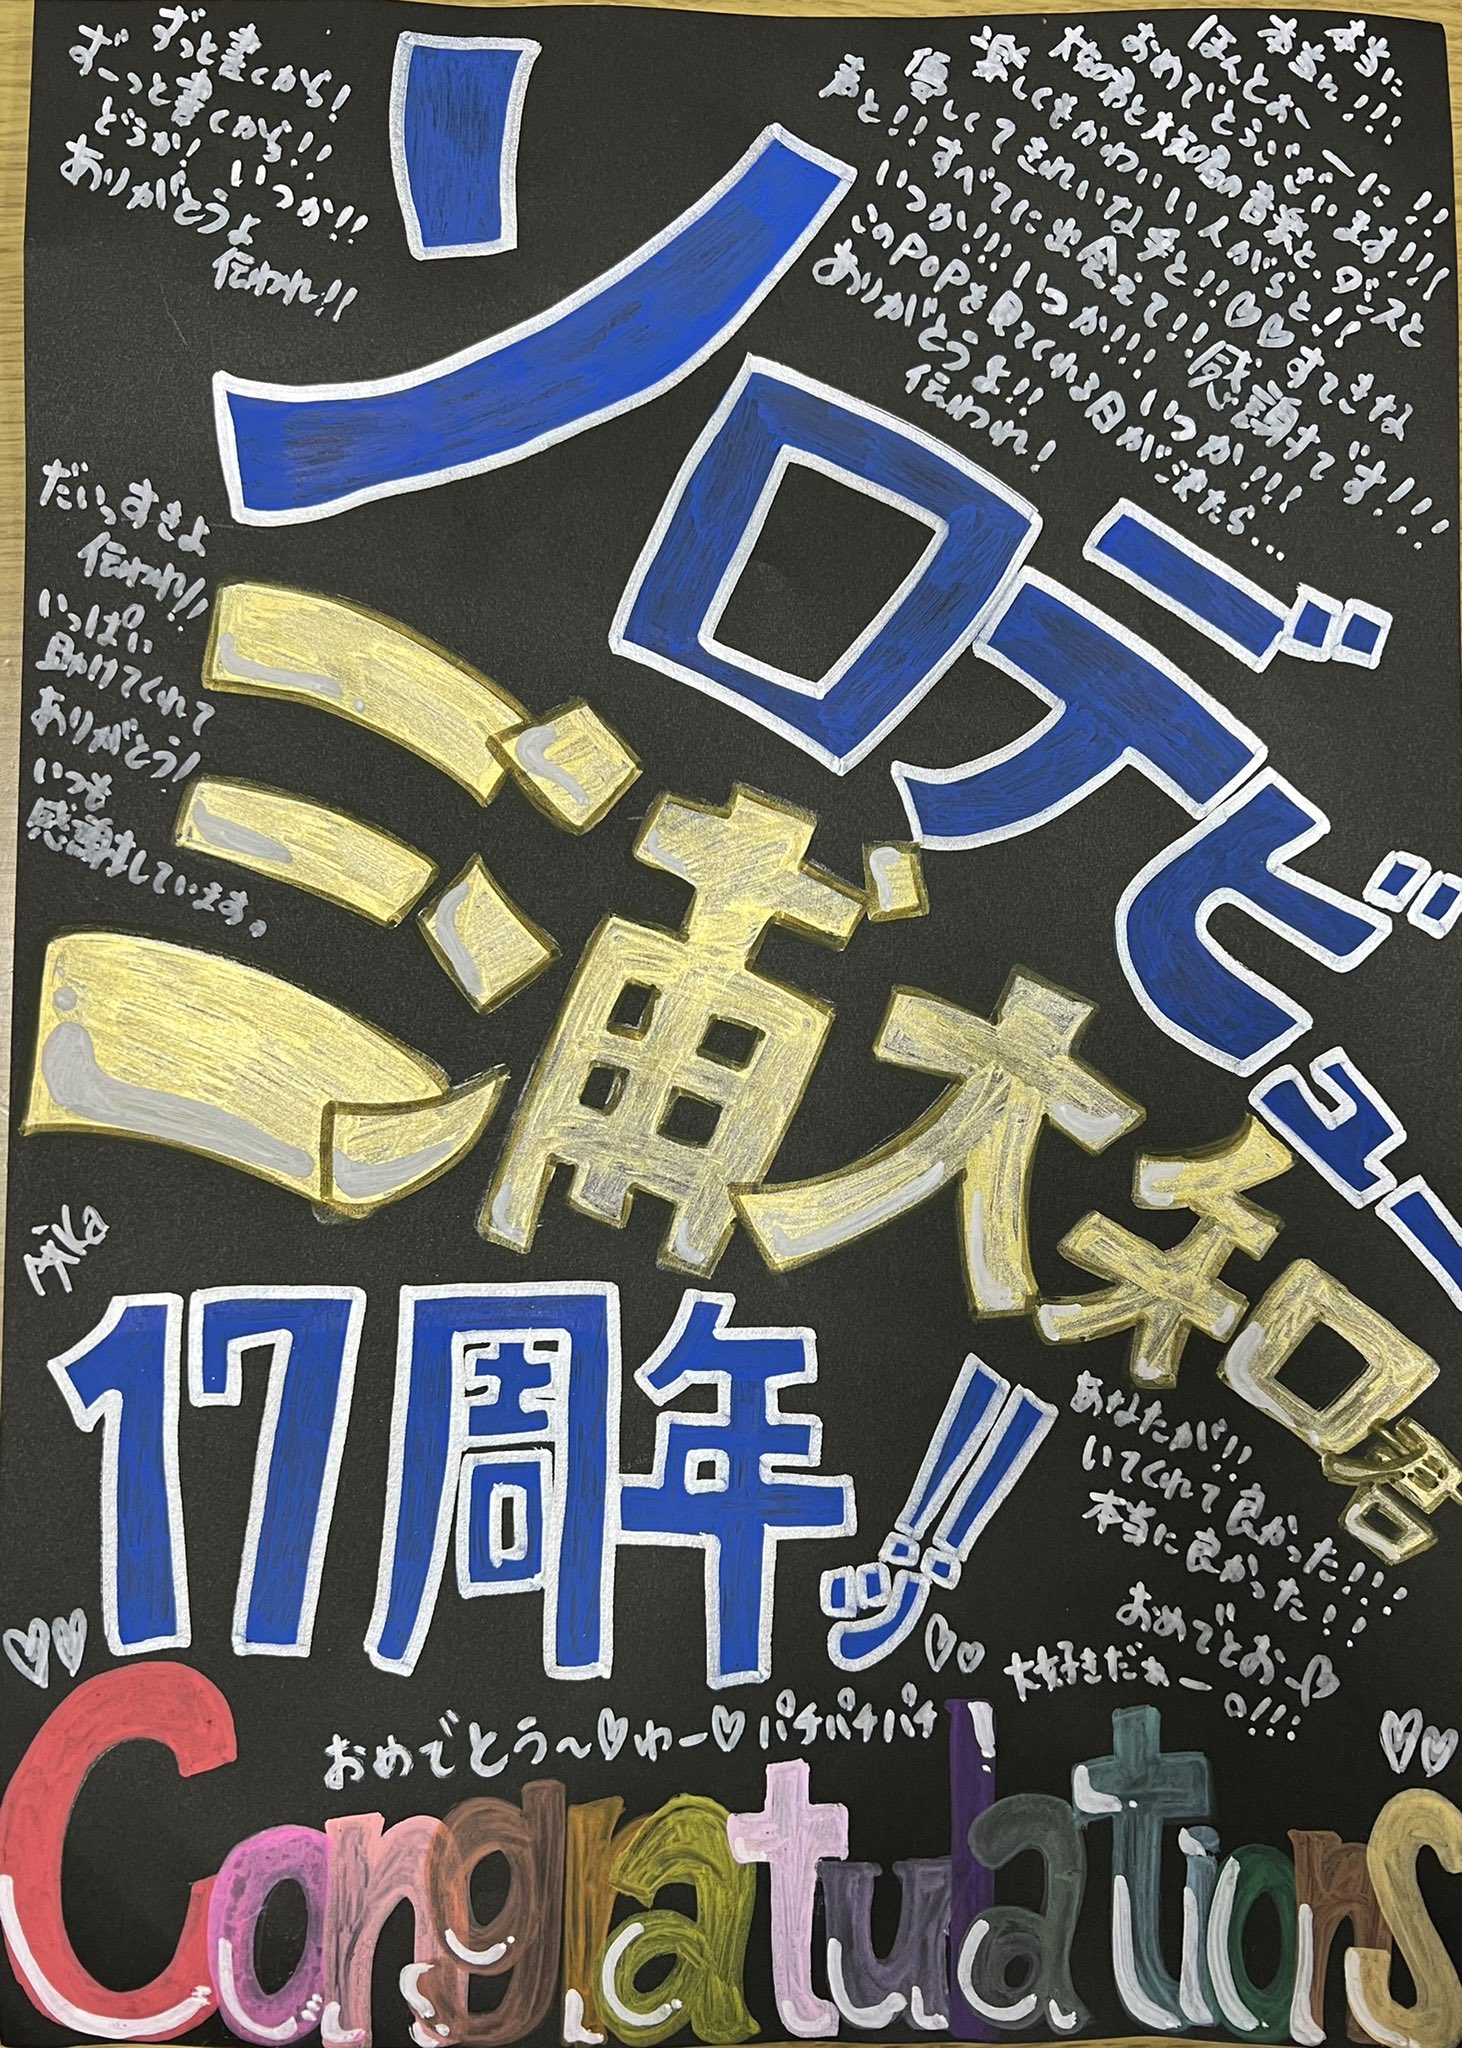 ずっと書くから!
ずーっと書くから!!
どうか! いつか!!
ありがとうよ
伝われ!!
本当に
本当に!!!
ほんとおーーに!!
おめでとうございます!!!
大知君と大知君の音楽と、ダンスと
楽しくもかわいい人がらと!!
優しくてきれいな手と!!♡♡すてきな
声と!!すべてに出会えて!!感謝です!!!
いつか!!!いつか!!!いつか!!!
このPOPを見てくれる日が来たら...
ありがとうよ!!
伝われ!
ソロデビュー
だいっすきよ
伝われ!!
いっぱい
助けてくれて
ありがとう!
いつも
感謝しています。
三浦大知君
Aika
17周年ッ!!
あなたが!!
いてくれて良かった!!!
本当に良かった!!
おめでとおー♡
大好きだぁー!!!
おめでとう〜♡わー♡パチパチパチ
Congratulations